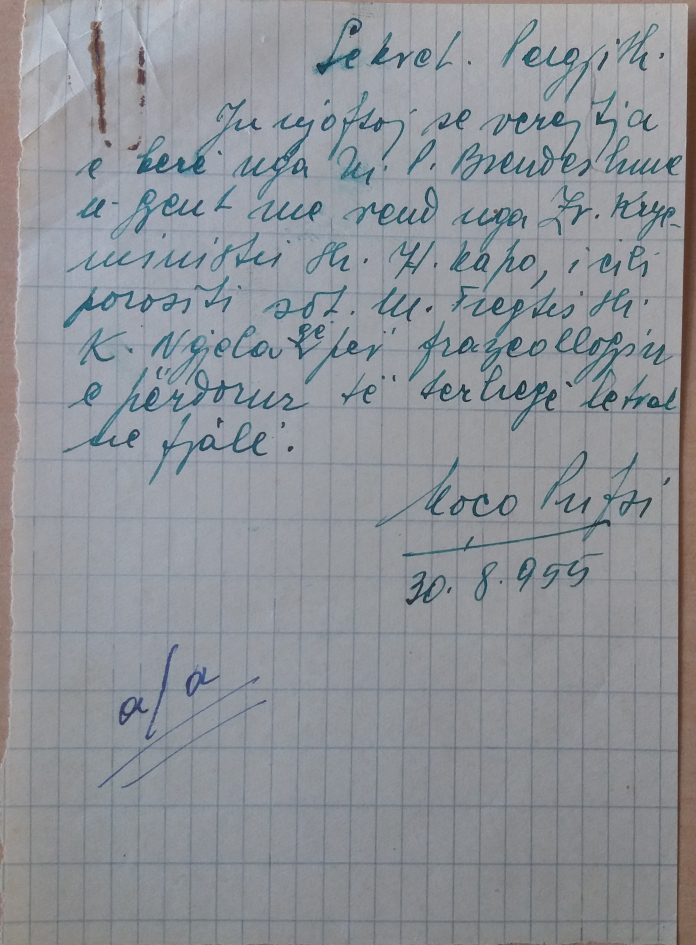 Sekret. Pergjith.
Ju njoftoj se verejtja
e berë nga M. P. Brendeshme
u gjent me vend nga Zv. Krye-
ministri sh. H. Kapo, i cili
porositi sot M. Tregtis sh.
K. Ngjela që për frazeollogjin
e përdorur të terheqë letrat
ne fjalë.
Koço
30. 8. 955
a/a